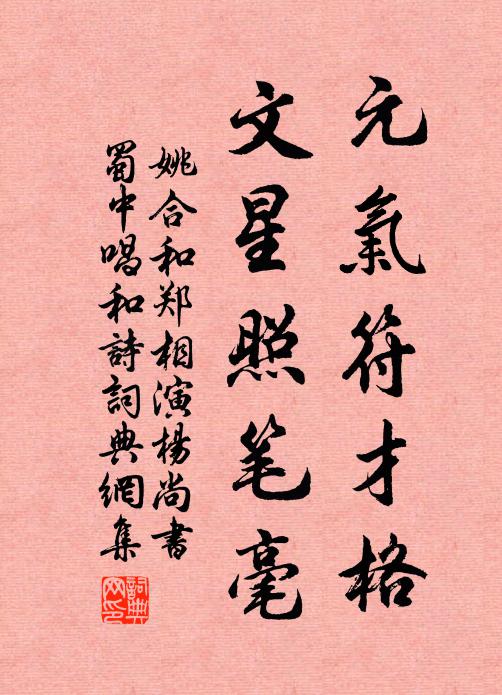 元氣符才格
文星照笔毫
姚合和郑相演杨尚書
蜀中唱和詩詞典網集
詞典網印